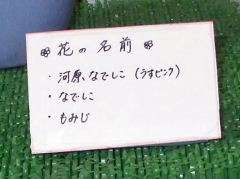 ✽ 花の名前 ✽
・河原なでしこ (うすピンク)
・なでしこ
・もみじ